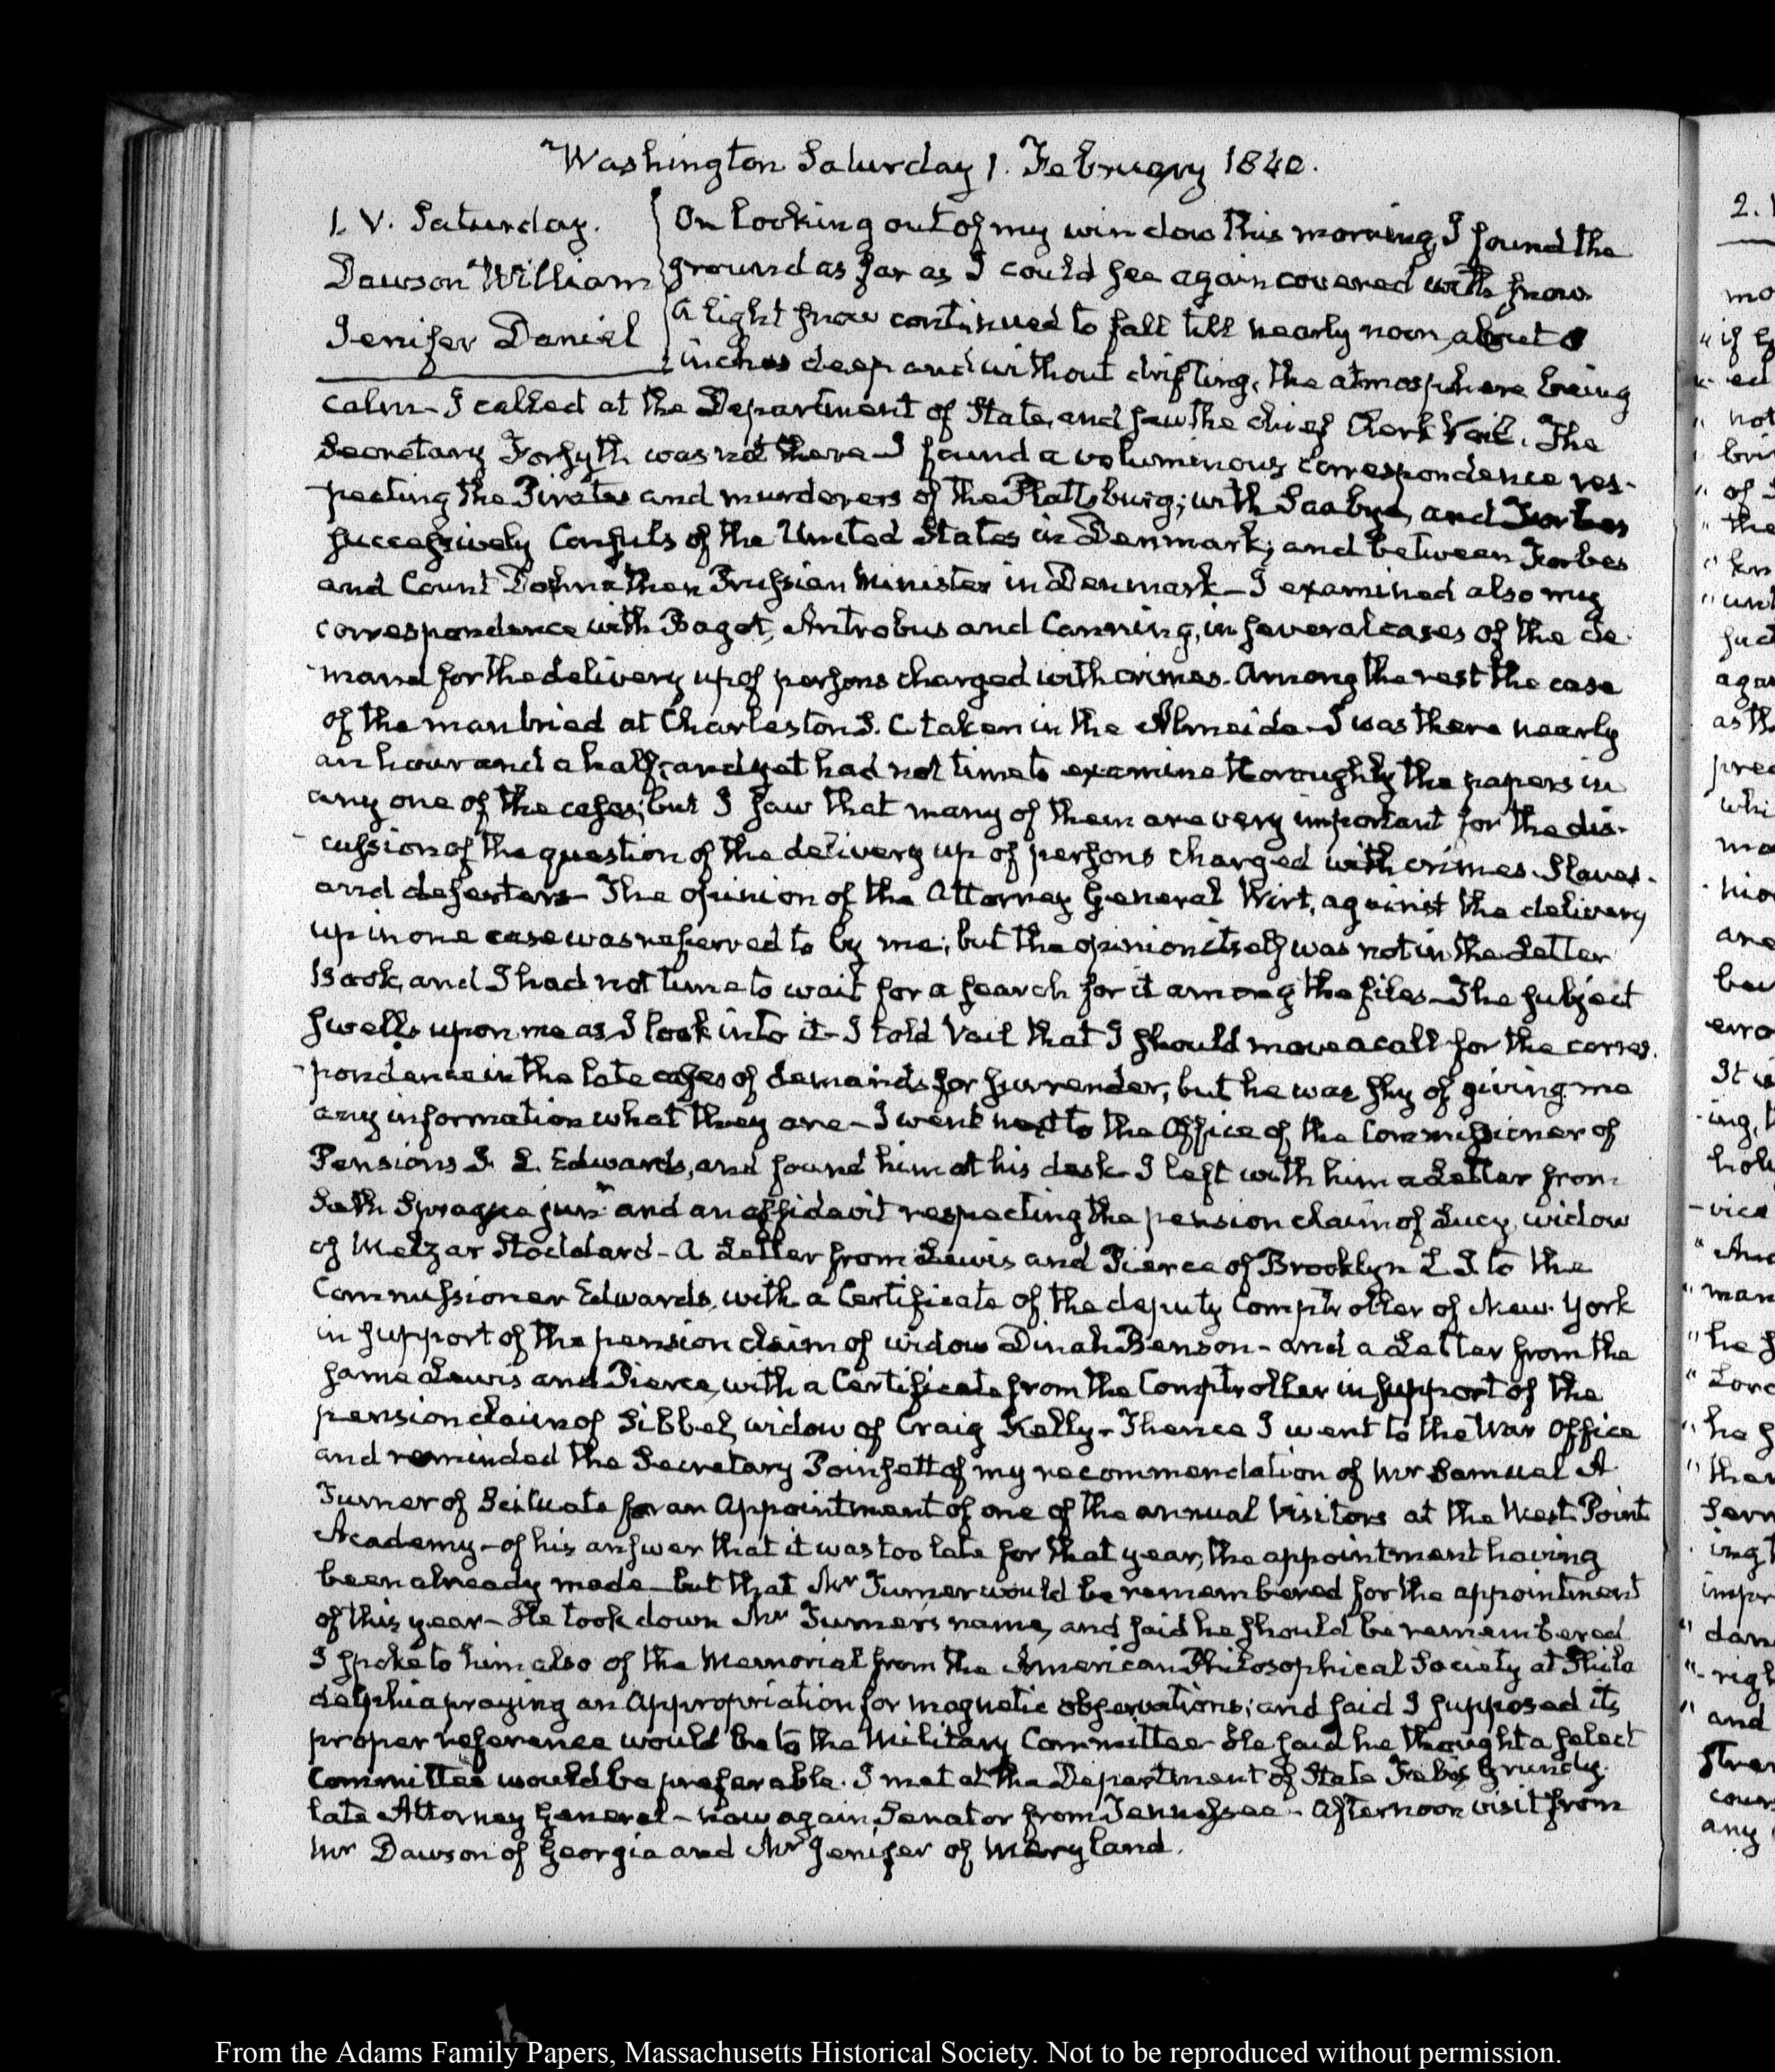 Washington Saturday 1. February 1840.
1. V. Saturday.
Dawson William
Jenifer Daniel
On looking out of my window this morning, I found the
ground as far as I could see again covered with snow
A light snow continued to fall till nearly noon, about
inches deep and without drifting, the atmosphere being
calm– I called at the Department of State, and saw the chief Clerk Vail. The
Secretary Forsyth was not there– I found a voluminous correspondence res-
-pecting the Pirates and murderers of the Plattsburg; with Saabye, and Forbes
successively Consuls of the United States in Denmark; and between Forbes
and Count Dohna then Prussian Minister in Denmark– I examined also my
correspondence with Bagot, Antrobus and Canning, in several cases of the de
-mand for the delivery up of persons charged with crimes. Among the rest the case
of the man tried at Charleston S. C taken in the Almeida– I was there nearly
an hour and a half, and yet had not time to examine thoroughly the papers in
any one of the cases; but I saw that many of them are very important for the dis-
-cussion of the question of the delivery up of persons charged with crimes. Slaves.
and deserters– The opinion of the Attorney General Wirt, against the delivery
up in one case was referred to by me; but the opinion itself was not in the Letter
Book, and I had not time to wait for a search for it among the files– The subject
swells upon me as I look into it– I told Vail that I should move a call for the corres.
-pondence in the late cases of demands for surrender, but he was shy of giving me
any information what they are– I went next to the Office of the Commissioner of
Pensions J. L. Edwards, and found him at his desk– I left with him a Letter from
Seth Sprague junr. and an affidavit respecting the pension claim of Lucy, widow
of Melzar Stoddard– A Letter from Lewis and Pierce of Brooklyn L. I. to the
Commissioner Edwards, with a Certificate of the deputy Comptroller of New-York
in support of the pension claim of widow Dinah Benson– and a Letter from the
same Lewis and Pierce, with a Certificate from the Comptroller in support of the
pension claim of Sibbel, widow of Craig Kelly– Thence I went to the War Office
and reminded the Secretary Poinsett of my recommendation of Mr Samuel A
Turner of Scituate for an Appointment of one of the annual Visitors at the West-Point
Academy– of his answer that it was too late for that year, the appointment having
been already made– but that Mr Turner would be remembered for the appointment
of this year– He took down Mr Turners name, and said he should be remembered
I spoke to him also of the Memorial from the American Philosophical Society at Phila
delphia praying an Appropriation for magnetic observations; and said I supposed its
proper reference would be to the Military Committee– He said he thought a select
Committee would be preferable. I met at the Department of State Felix Grundy.
late Attorney General– now again Senator from Tennessee– Afternoon visit from
Mr Dawson of Georgia and Mr Jenifer of Maryland.
From the Adams Family Papers, Massachusetts Historical Society. Not to be reproduced without permission.